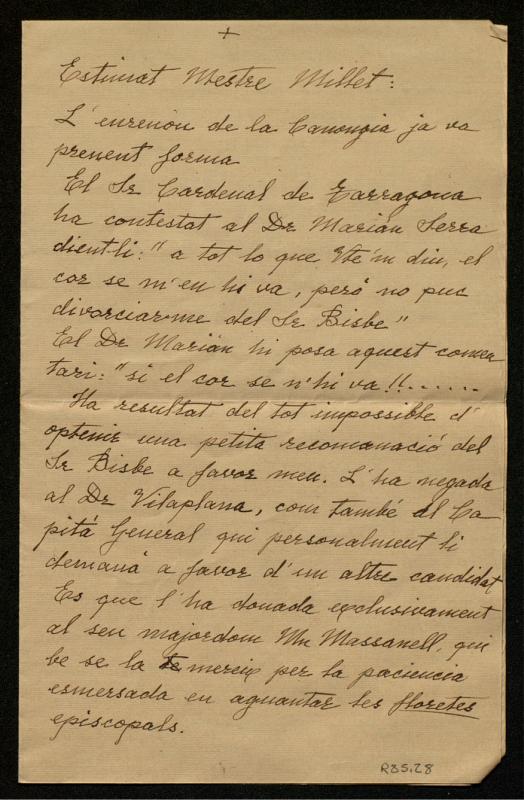 +
Estimat Mestre Millet:
L'enrenou de la Canongia ja va
prenent forma
El Sr Cardenal de Tarragona
ha contestat al Dr Marián Serra
dient-li: "a tot lo que Vte'm diu, el
cor se m'en hi va, peró no puc
divorciar-me del Sr Bisbe"
El Dr Marián hi posa aquest comen
tari: "si el cor se n'hi va!!......
Ha resultat del tot impossible d'
optenir una petita recomanació del
Sr Bisbe a favor meu. L'ha negada
al Dr Vilaplana, com també al Ca
pitá General qui personalment li
demaná a favor d'un altre candidat
Es que l'ha donada exclusivament
al seu majordom Mn Massanell, qui
be se la mereix per la paciencia
esmersada en aguantar les floretes
episcopals.
R85.28